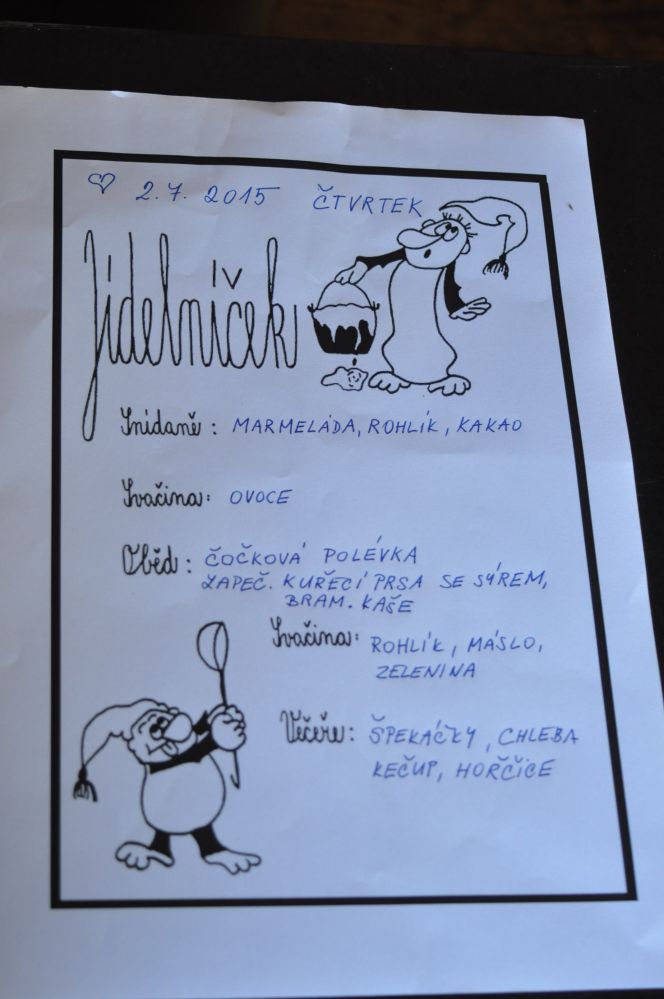 ♡ 2.7. 2015 ČTVRTEK
Jídelníček
Snídaně: MARMELÁDA, ROHLÍK, KAKAO
Svačina: OVOCE
Oběd: ČOČKOVÁ POLÉVKA
ZAPEČ. KUŘECÍ PRSA SE SÝREM,
BRAM. KAŠE
Svačina: ROHLÍK, MÁSLO,
ZELENINA
Večeře: ŠPEKÁČKY, CHLEBA
KEČUP, HORČICE